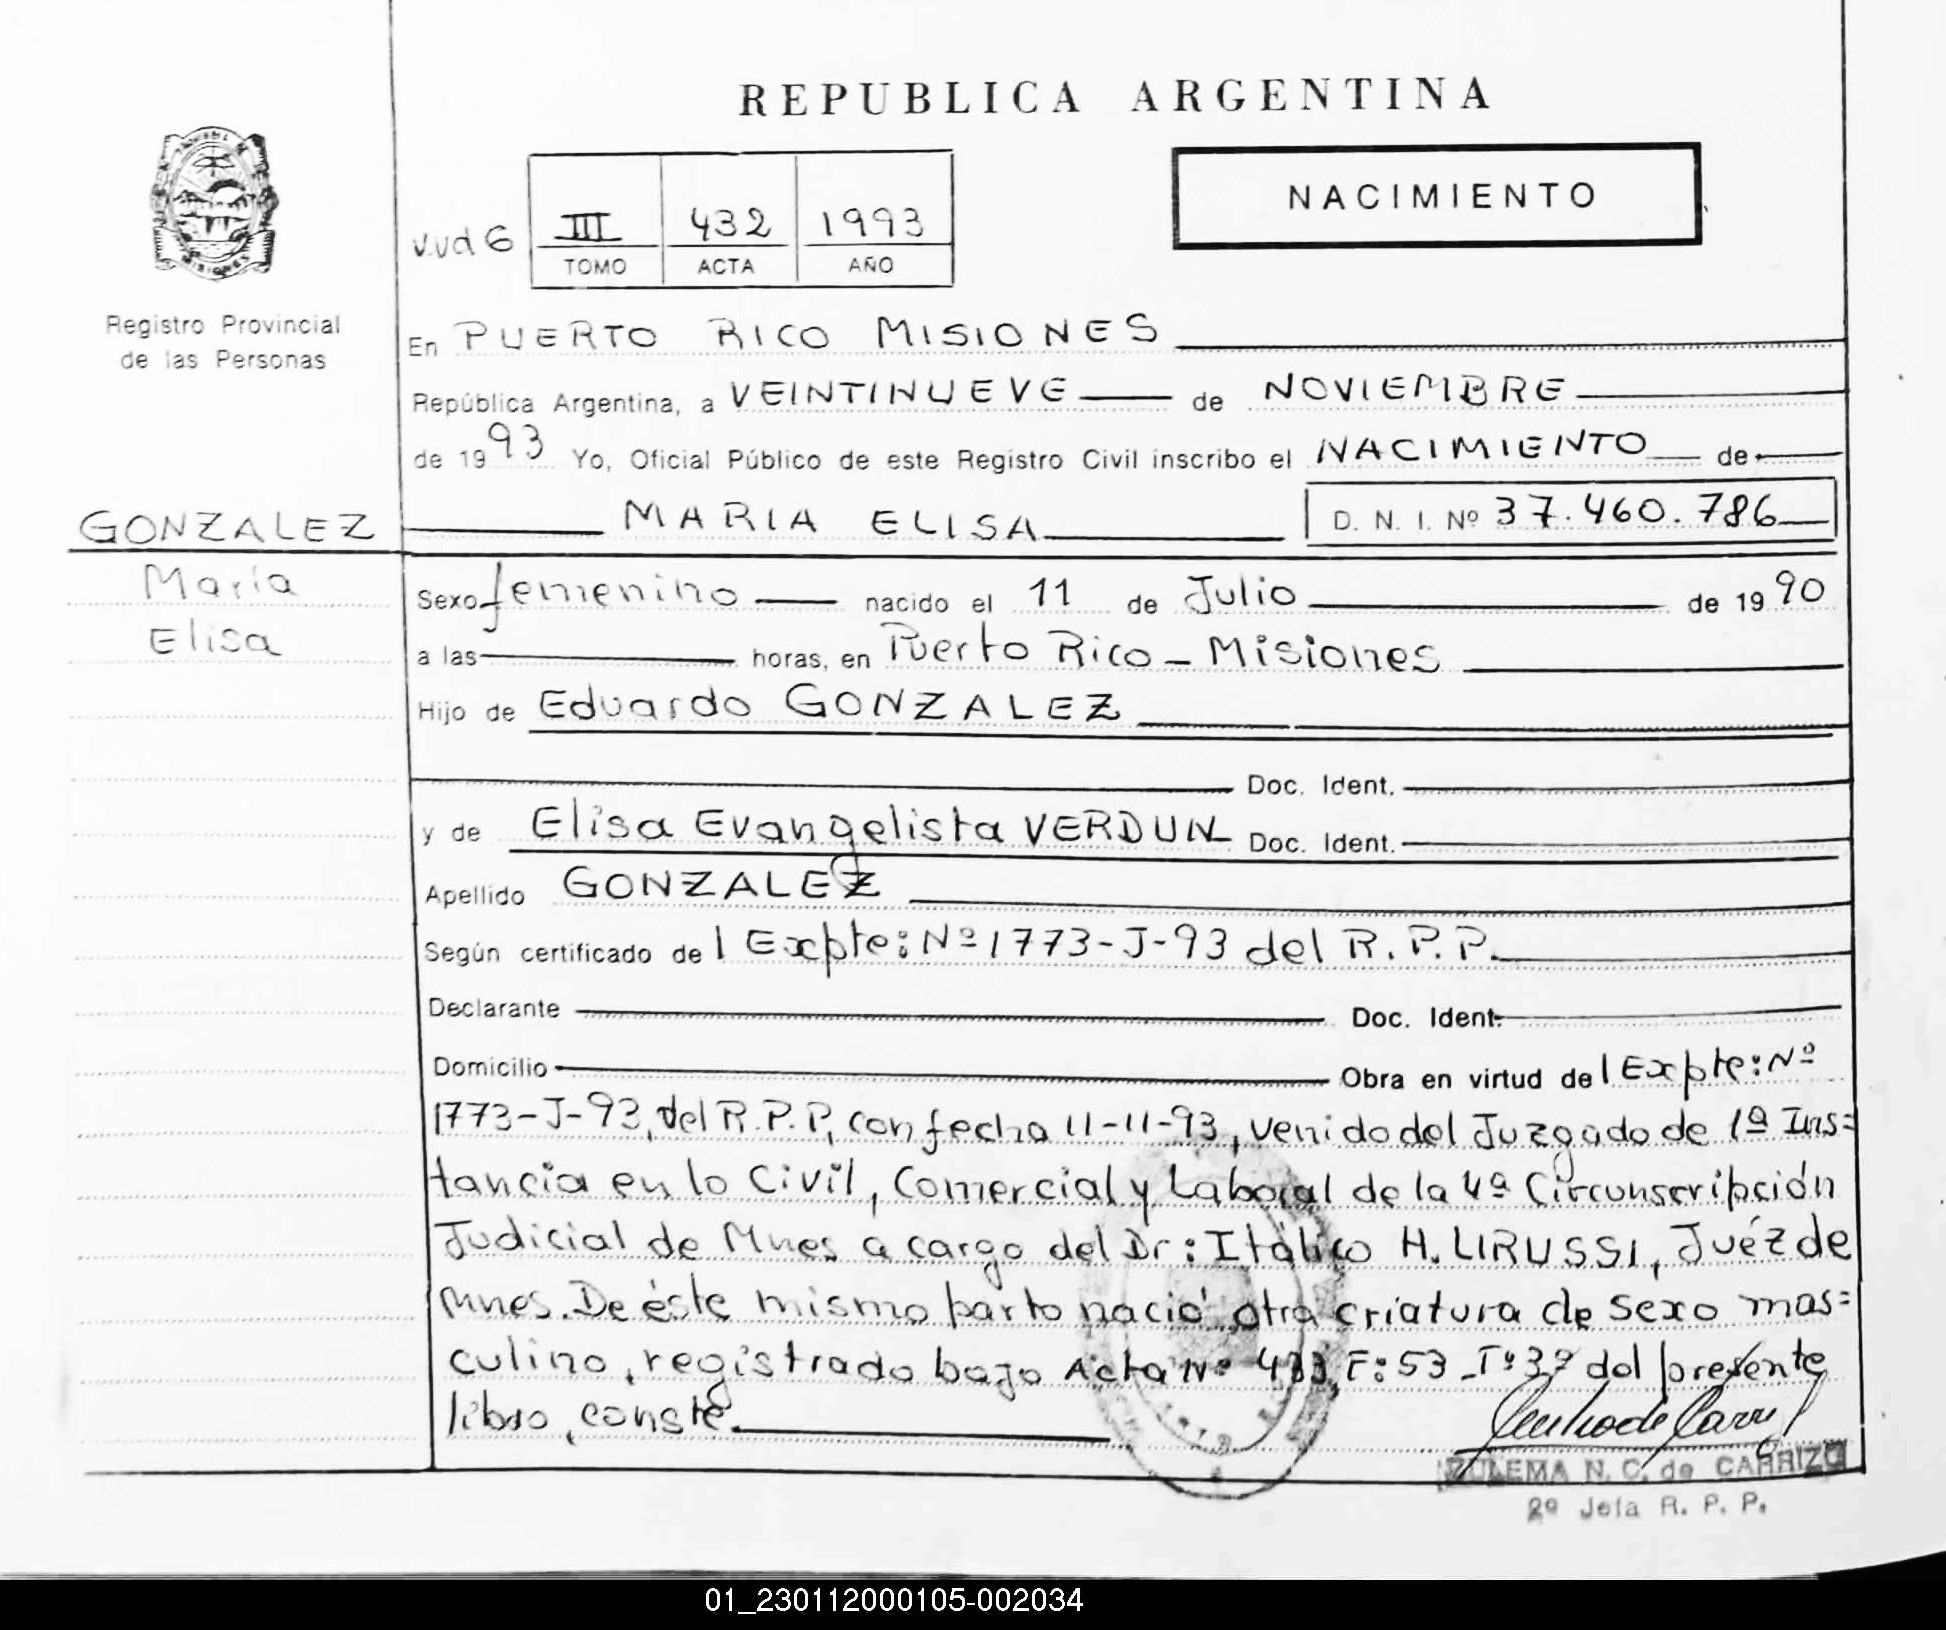 REPUBLICA ARGENTINA
NACIMIENTO
III 432 1993
TOMO ACTA AÑO
Registro Provincial
de las Personas
En PUERTO RICO MISIONES
República Argentina, a VEINTINUEVE de NOVIEMBRE
de 1993 Yo, Oficial Público de este Registro Civil inscribo el NACIMIENTO de
GONZALEZ MARIA ELISA D. N. I. Nº 37.460.786
María
Elisa
Sexo femenino nacido el 11 de Julio de 1990
a las horas, en Puerto Rico - Misiones
Hijo de Eduardo GONZALEZ
Doc. Ident.
y de Elisa Evangelista VERDUN Doc. Ident.
Apellido GONZALEZ
Según certificado del Expte: Nº 1773-J-93 del R.P.P.
Declarante Doc. Ident.
Domicilio Obra en virtud del Expte: Nº
1773-J-93, del R.P.P, con fecha 11-11-93, venido del Juzgado de 1ª Ins=
tancia en lo Civil, Comercial y Laboral de la 4ª Circunscripción
Judicial de Mnes a cargo del Dr: Itálico H. LIRUSSI, Juéz de
Mnes. De éste mismo parto nació otra criatura de sexo mas=
culino, registrado bajo Acta Nº 433, F: 53 - Tº 3º del presente
libro, conste.
ZULEMA N. C. de CARRIZO
2º Jefa R. P. P.
01_230112000105-002034